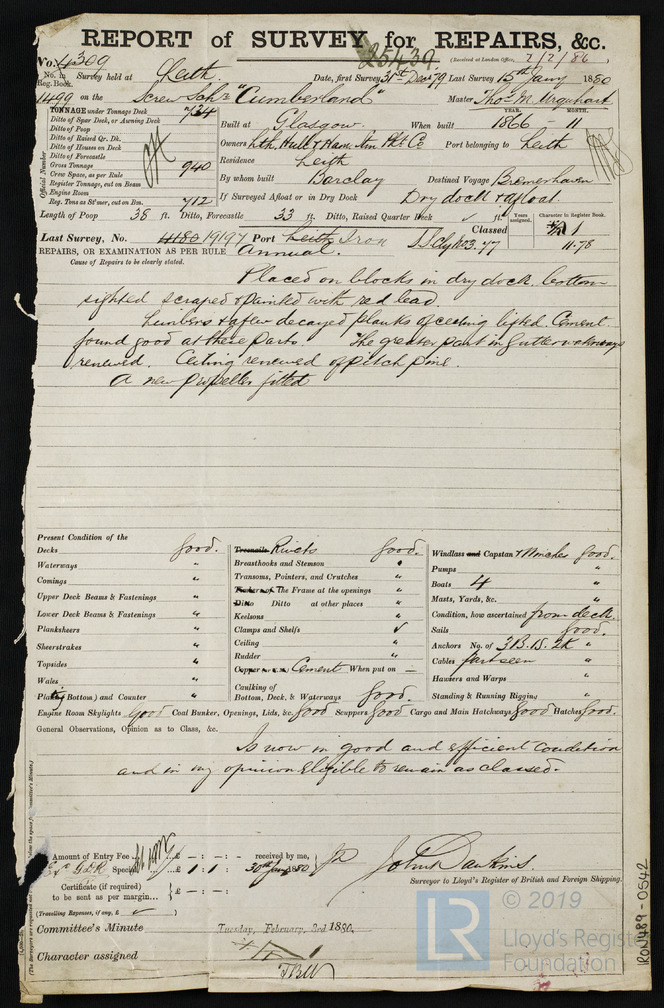 REPORT of SURVEY for REPAIRS, &c.
25439
(Received at London Office, 2/2/80)
No. 4309
No. in Reg. Book. Survey held at Leith Date, first Survey 31st Decr 79 Last Survey 15th Jany 1880
1499 on the Screw Schr "Cumberland" Master Thos. M. Urquhart
TONNAGE under Tonnage Deck 734
Ditto of Spar Deck, or Awning Deck
Ditto of Poop
Ditto of Raised Qr. Dk.
Ditto of Houses on Deck
Ditto of Forecastle
Gross Tonnage 940
Crew Space, as per Rule
Register Tonnage, cut on Beam
Engine Room
Reg. Tons as St'mer, cut on Bm. 712
Official Number
YEAR. MONTH.
Built at Glasgow. When built 1866 - 11
Owners Lth, Hull & Ham. Stm Pkt Co Port belonging to Leith
Residence Leith
By whom built Barclay Destined Voyage Bremerhaven
If Surveyed Afloat or in Dry Dock Dry dock & afloat
Length of Poop 38 ft. Ditto, Forecastle 33 ft. Ditto, Raised Quarter Deck ✓ ft.
Years assigned. Character in Register Book.
Classed
11.78
Last Survey, No. 4180 19197 Port Leith Iron
REPAIRS, OR EXAMINATION AS PER RULE Annual.
Cause of Repairs to be clearly stated.
Placed on blocks in dry dock, bottom
sighted scraped & painted with red lead.
Limbers & a few decayed planks of ceiling lifted. Cement
found good at these parts. The greater part in Gutter waterways
renewed. Ceiling renewed of pitch pine.
A new propeller fitted
Present Condition of the
Decks Good.
Waterways "
Comings "
Upper Deck Beams & Fastenings "
Lower Deck Beams & Fastenings "
Planksheers "
Sheerstrakes "
Topsides "
Wales "
Plating (Bottom) and Counter "
Treenails Rivets Good.
Breasthooks and Stemson "
Transoms, Pointers, and Crutches "
The Frame at the openings "
Ditto Ditto at other places "
Keelsons "
Clamps and Shelfs ✓
Ceiling "
Rudder "
Cement When put on —
Caulking of Bottom, Deck, & Waterways Good.
Windlass and Capstan & Winches Good.
Pumps "
Boats 4 "
Masts, Yards, &c. "
Condition, how ascertained from deck.
Sails Good.
Anchors No. of 3B. 1S. 2K "
Cables part seen "
Hawsers and Warps "
Standing & Running Rigging "
Engine Room Skylights Good Coal Bunker, Openings, Lids, &c. Good Scuppers Good Cargo and Main Hatchways Good Hatches Good.
General Observations, Opinion as to Class, &c.
Is now in good and efficient condition
and in my opinion Eligible to remain as classed.
Amount of Entry Fee £ - : - : - received by me,
Special £ 1 : 1 : 30th Jany 1880
Certificate (if required) to be sent as per margin £ - : - : -
(Travelling Expenses, if any, £ ✓ )
John Dawkins
Surveyor to Lloyd's Register of British and Foreign Shipping.
Committee's Minute Tuesday, February, 3rd 1880.
Character assigned
IRON489-0542
© 2019
LR
Lloyd's Register
Foundation